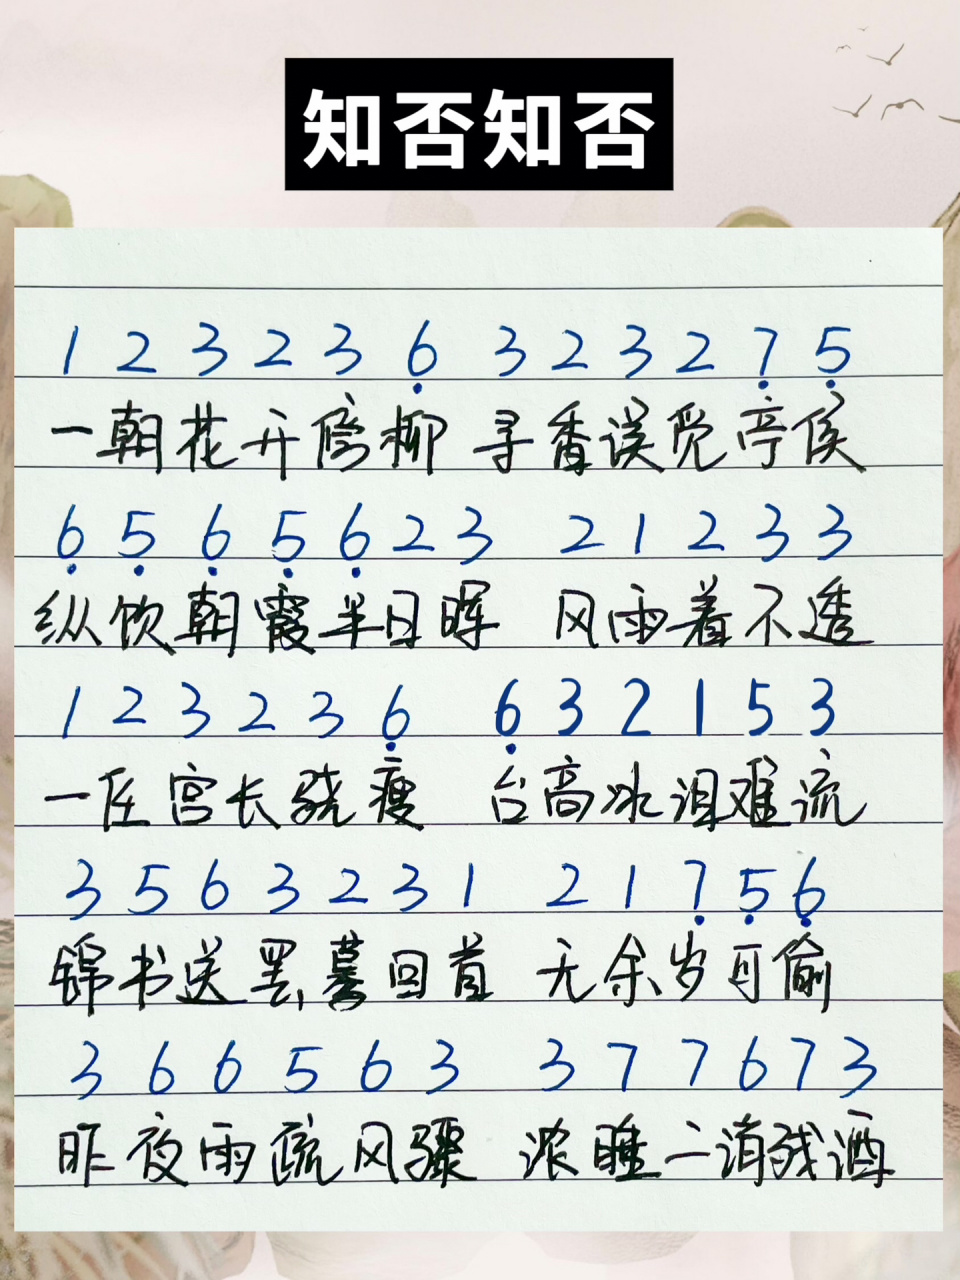 知否知否
1 2 3 2 3 6̣ 3 2 3 2 7̣ 5̣
一朝花开傍柳 寻香误觅亭侯
6̣ 5̣ 6̣ 5̣ 6̣ 2 3 2 1 2 3 3
纵饮朝霞半日晖 风雨着不透
1 2 3 2 3 6̣ 6̣ 3 2 1 5 3
一任宫长骁瘦 台高冰泪难流
3 5 6 3 2 3 1 2 1 7̣ 5̣ 6̣
锦书送罢蓦回首 无余岁可偷
3 6 6 5 6 3 3 7 7 6 7 3
昨夜雨疏风骤 浓睡二消残酒